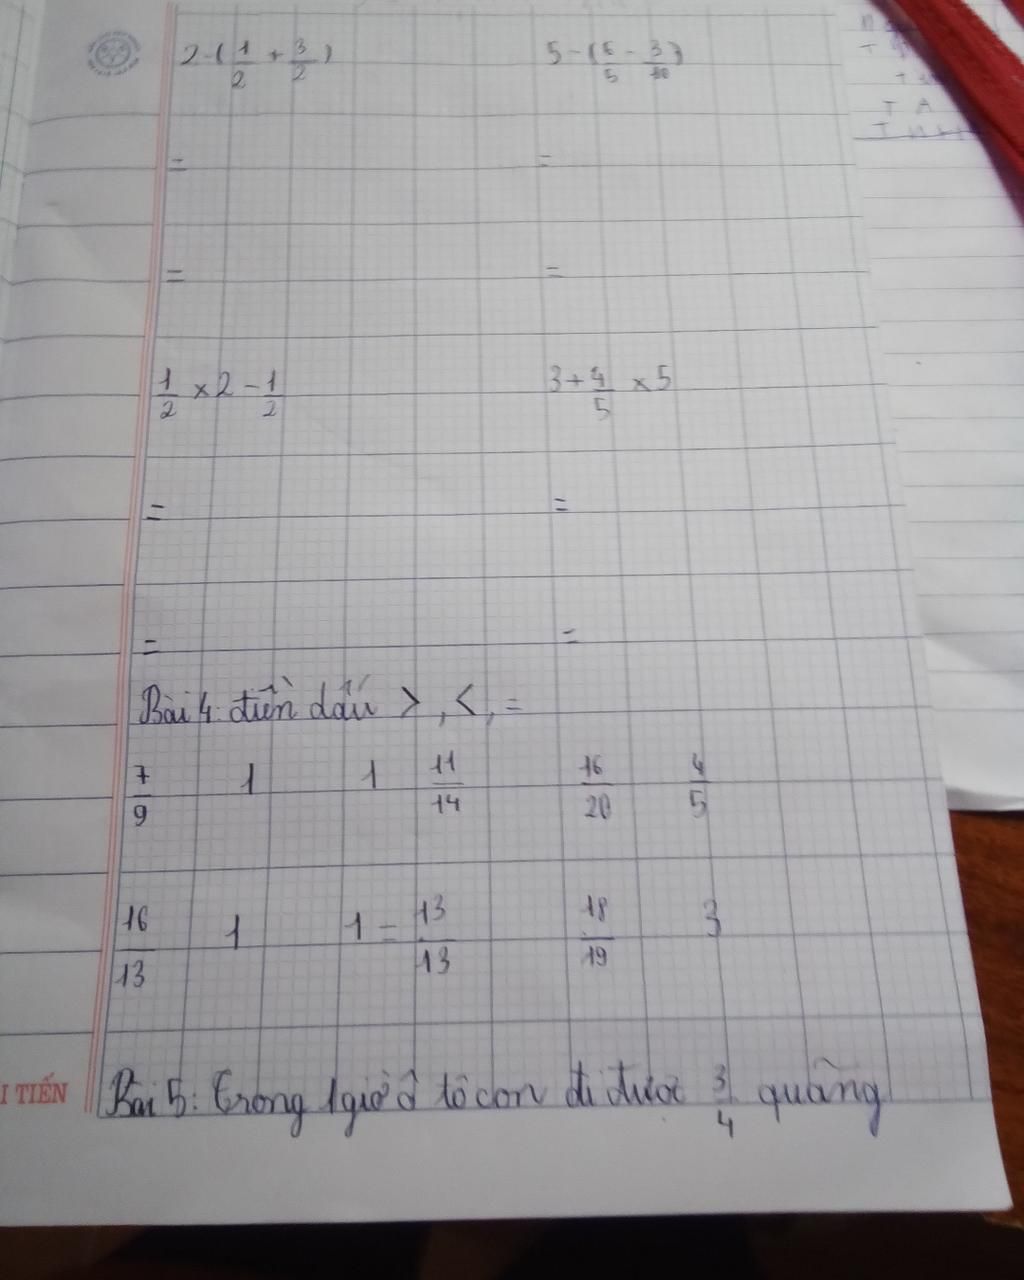 2 - ( 1/2 + 3/2 )    5 - ( 6/5 - 3/10 )
=    =
=    =
1/2 × 2 - 1/2    3 + 4/5 × 5
=    =
=    =
Bài 4: điền dấu > , < , =
7/9    1    1    11/14    16/20    4/5
16/13    1    1 = 13/13    18/19    3
I TIẾN
Bài 5: Trong 1 giờ ô tô con đi được 3/4 quãng